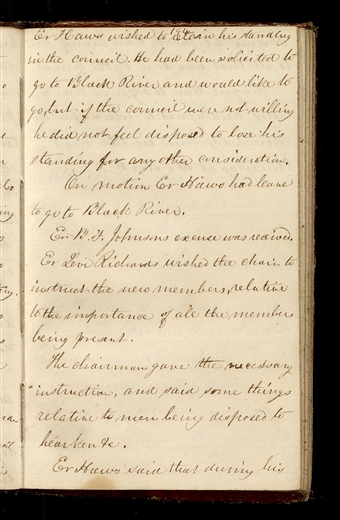 Er Haws wished to retain his standing
in the council. He had been solicited to
go to Black River and would like to
go, but if the council were not willing
he did not feel disposed to lose his
standing for any other consideration.
On motion Er Haws had leave
to go to Black River.
Er B. F. Johnsons excuse was recived.
Er Levi Richards wished the chair to
instruct the new members, relative
to the importance of all the members
being present.
The chairman gave the necessary
instruction, and said some things
relative to men being disposed to
hearken &c.
Er Haws said that during his